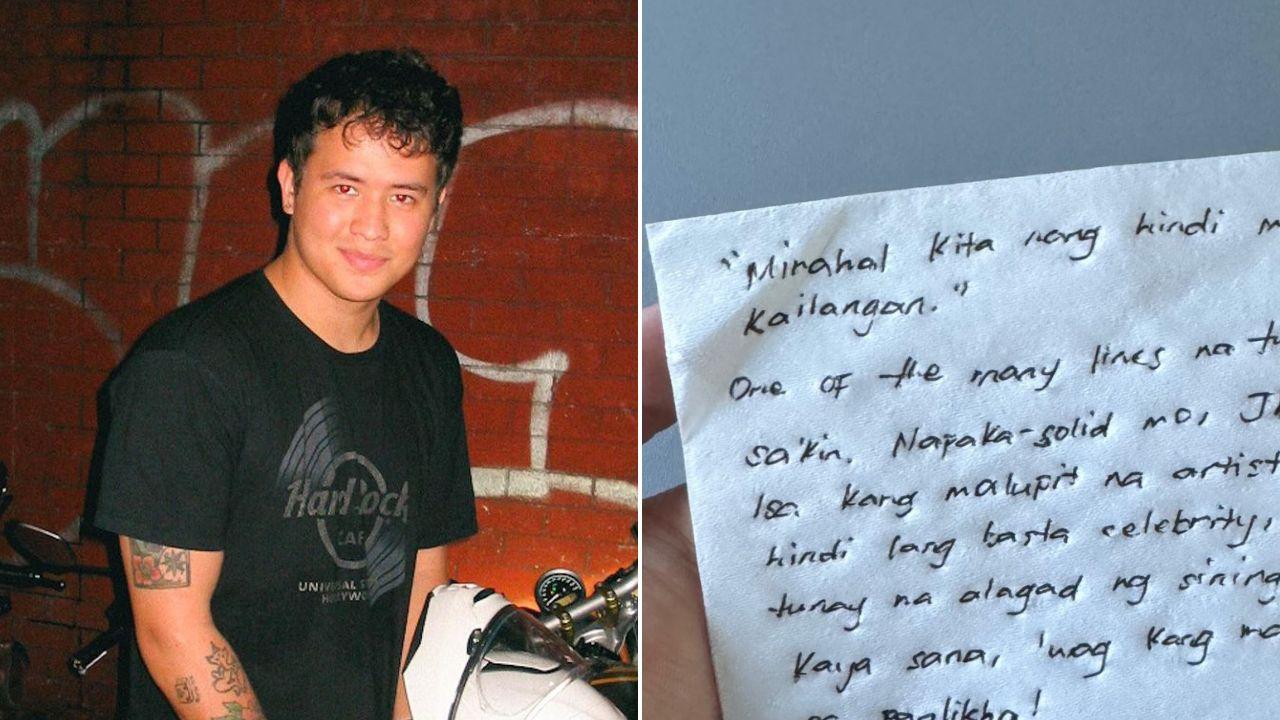 Hard Rock
CAFE
UNIVERSAL
HOLLYWOOD
"Minahal kita nang hindi
kailangan."
One of the many lines na
sa'kin. Napaka-solid mo,
Isa kang malupit na
hindi lang basta celebrity,
tunay na alagad ng sining
Kaya sana, 'wag kang